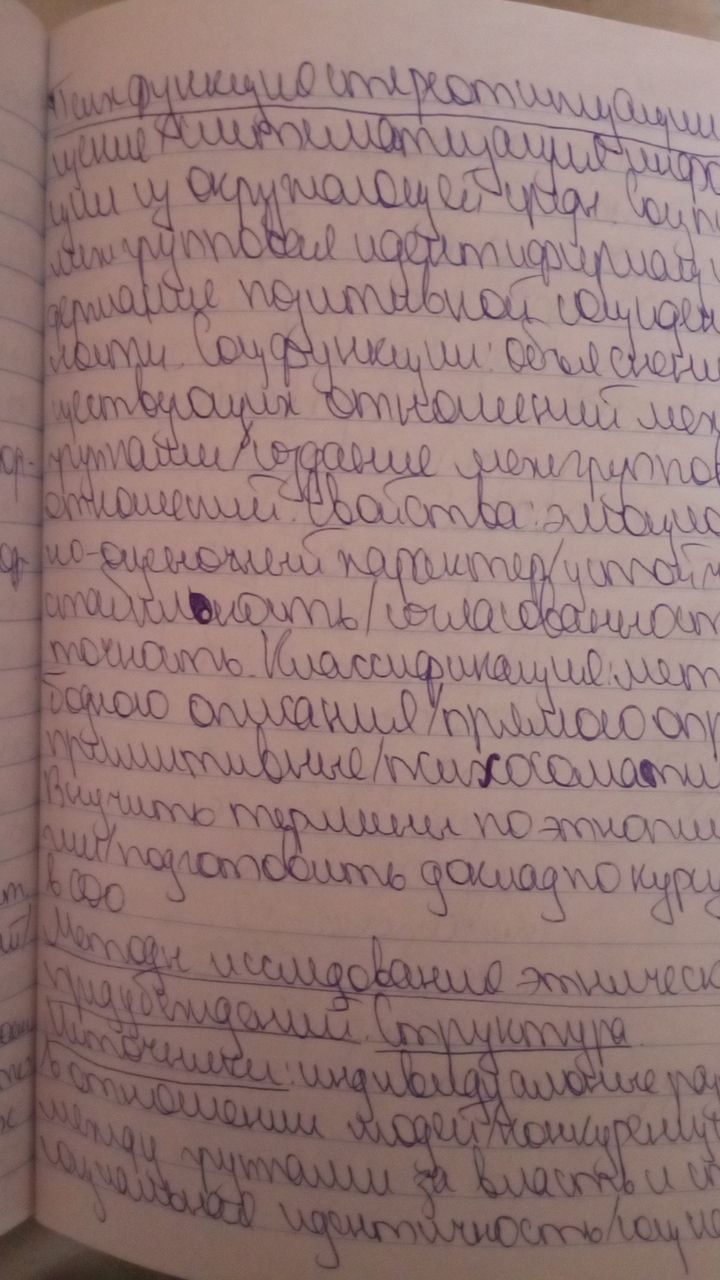 Псих функции стереотипизации
щение/систематизация инфо
ции из окружающей среды. Соц п
межгрупповая идентификац
держание позитивной соц иден
ности. Соц функции: объяснени
ществующих отношений меж
группами/создание межгруппов
отношений. Свойства: эмоцио
но-оценочный характер/устойч
стабильность/согласованност
точность. Классификация: мет
бодного описания/прямого опр
примитивные/психосомати
Выучить термины по этнопси
гии/подготовить доклад по курсу
в СДО
Методы исследования этническ
предубеждений. Структура
Источники: индивидуальные раз
в отношении людей/конкуренц
между группами за власть и ст
социальная идентичность/социа